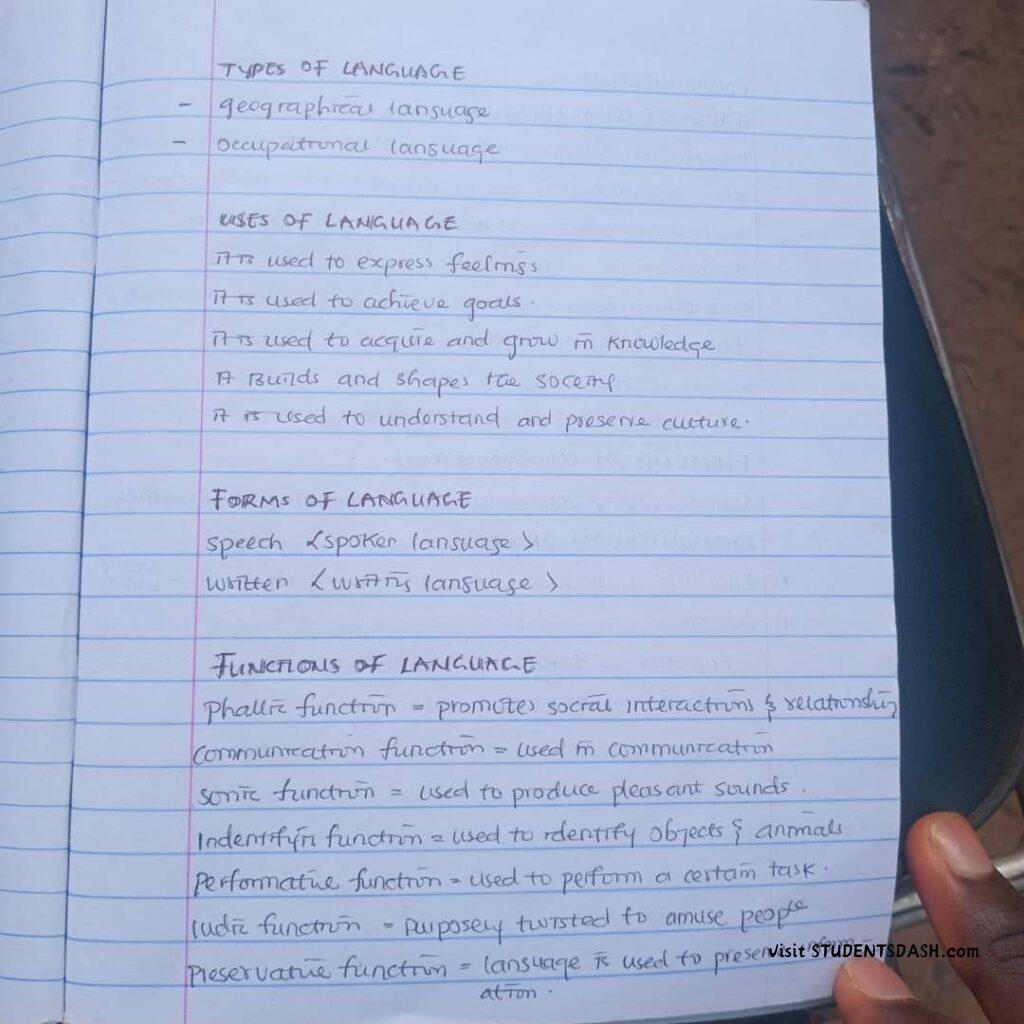 TYPES OF LANGUAGE
- geographical language
- occupational language
USES OF LANGUAGE
It is used to express feelings
It is used to achieve goals.
It is used to acquire and grow in knowledge
It Builds and shapes the society
It is used to understand and preserve culture.
FORMS OF LANGUAGE
speech <spoken language>
written <writing language>
FUNCTIONS OF LANGUAGE
phallic function = promotes social interactions & relationship
communication function = used in communication
sonic function = used to produce pleasant sounds.
Indentifyin function = used to identify objects & animals
performative function = used to perform a certain task.
ludic function = purposely twisted to amuse people
preservative function = language is used to
ation.
visit STUDENTSDASH.com